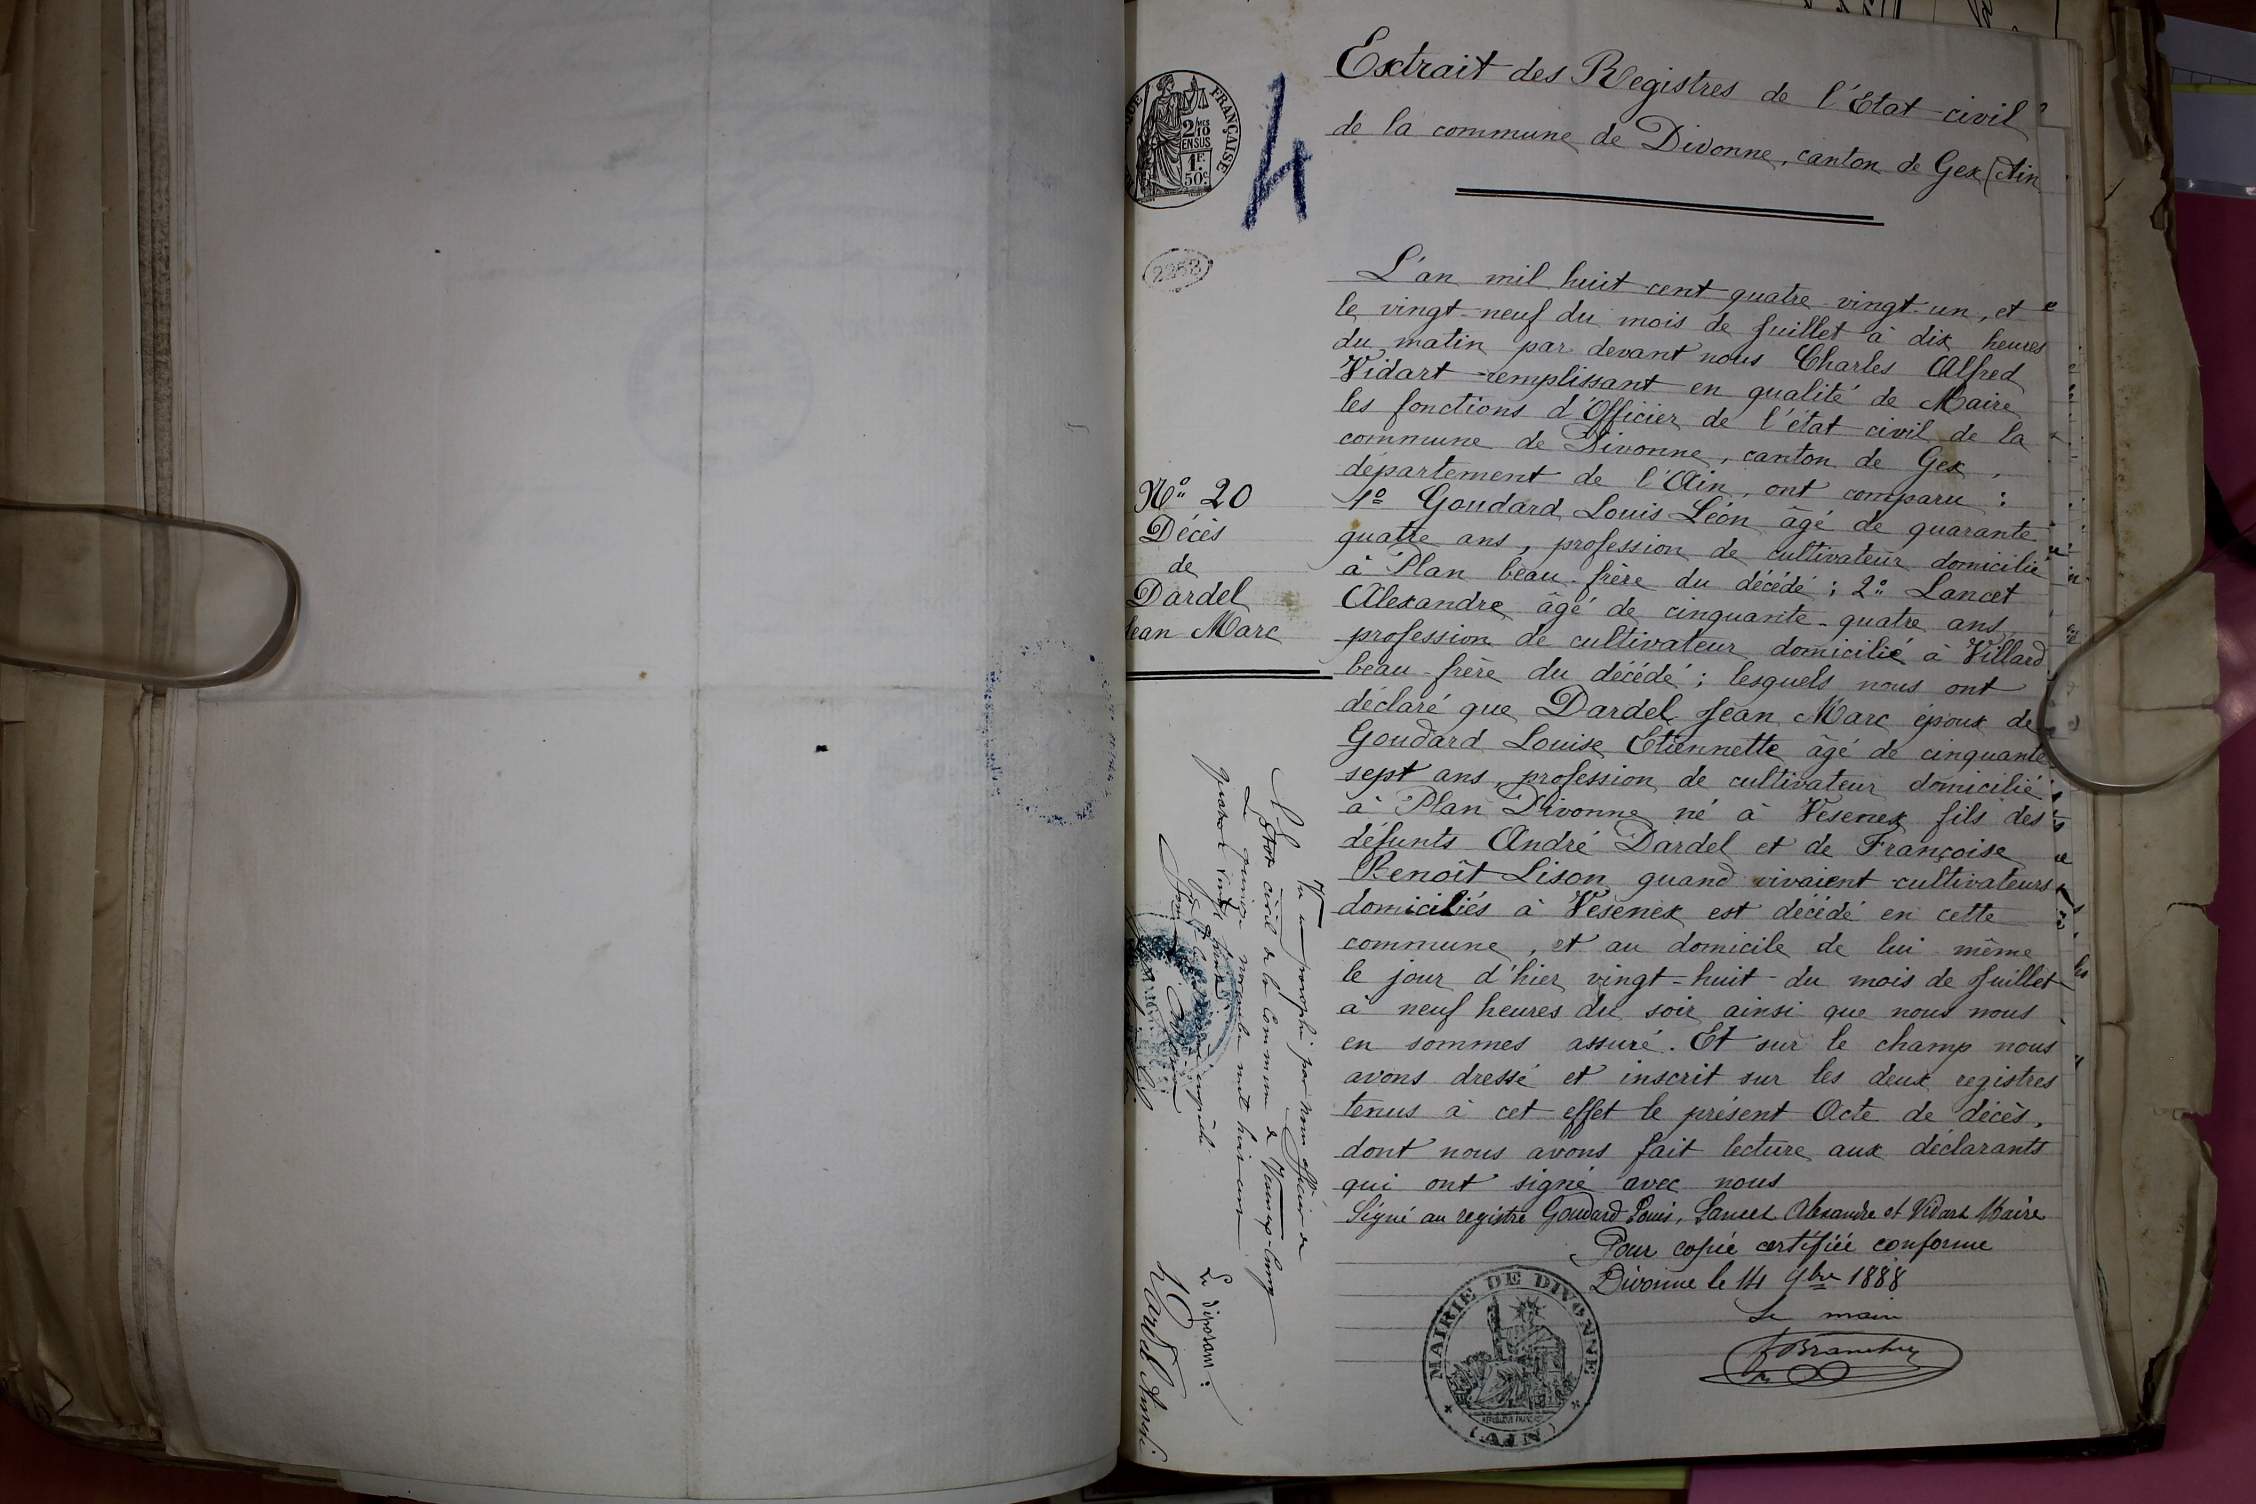 Extrait des Registres de l'Etat-civil
de la commune de Divonne, canton de Gex (Ain
FRANÇAISE
2/10
EN SUS
1F.
50c.
4
2253
L'an mil huit cent quatre-vingt-un, et
le vingt-neuf du mois de Juillet à dix heures
du matin par devant nous Charles Alfred
Vidart remplissant en qualité de Maire
les fonctions d'Officier de l'état civil de la
commune de Divonne, canton de Gex,
département de l'Ain, ont comparu :
1º Goudard Louis Léon âgé de quarante
quatre ans, profession de cultivateur domicilié
à Plan beau-frère du décédé ; 2º Lancet
Alexandre âgé de cinquante-quatre ans
profession de cultivateur domicilié à Villard
beau-frère du décédé ; lesquels nous ont
déclaré que Dardel Jean Marc époux de
Goudard Louise Etiennette âgé de cinquante
sept ans, profession de cultivateur domicilié
à Plan Divonne né à Vesenex fils des
défunts André Dardel et de Françoise
Benoît Lison quand vivaient cultivateurs
domiciliés à Vesenex est décédé en cette
commune, et au domicile de lui-même
le jour d'hier vingt-huit du mois de Juillet
à neuf heures du soir ainsi que nous nous
en sommes assuré. Et sur le champ nous
avons dressé et inscrit sur les deux registres
tenus à cet effet le présent Acte de décès,
dont nous avons fait lecture aux déclarants
qui ont signé avec nous
Signé au registre Goudard Louis, Lancet Alexandre et Vidart Maire
Pour copie certifiée conforme
Divonne le 14 9bre 1888
Le maire
MAIRIE DE DIVONNE
(AIN)
Nº 20
Décès
de
Dardel
Jean Marc
Vu et paraphé par nous officier de
l'Etat civil de la commune de
Le quinze novembre mil huit cent
quatre vingt huit
Le déposant :
Dardel